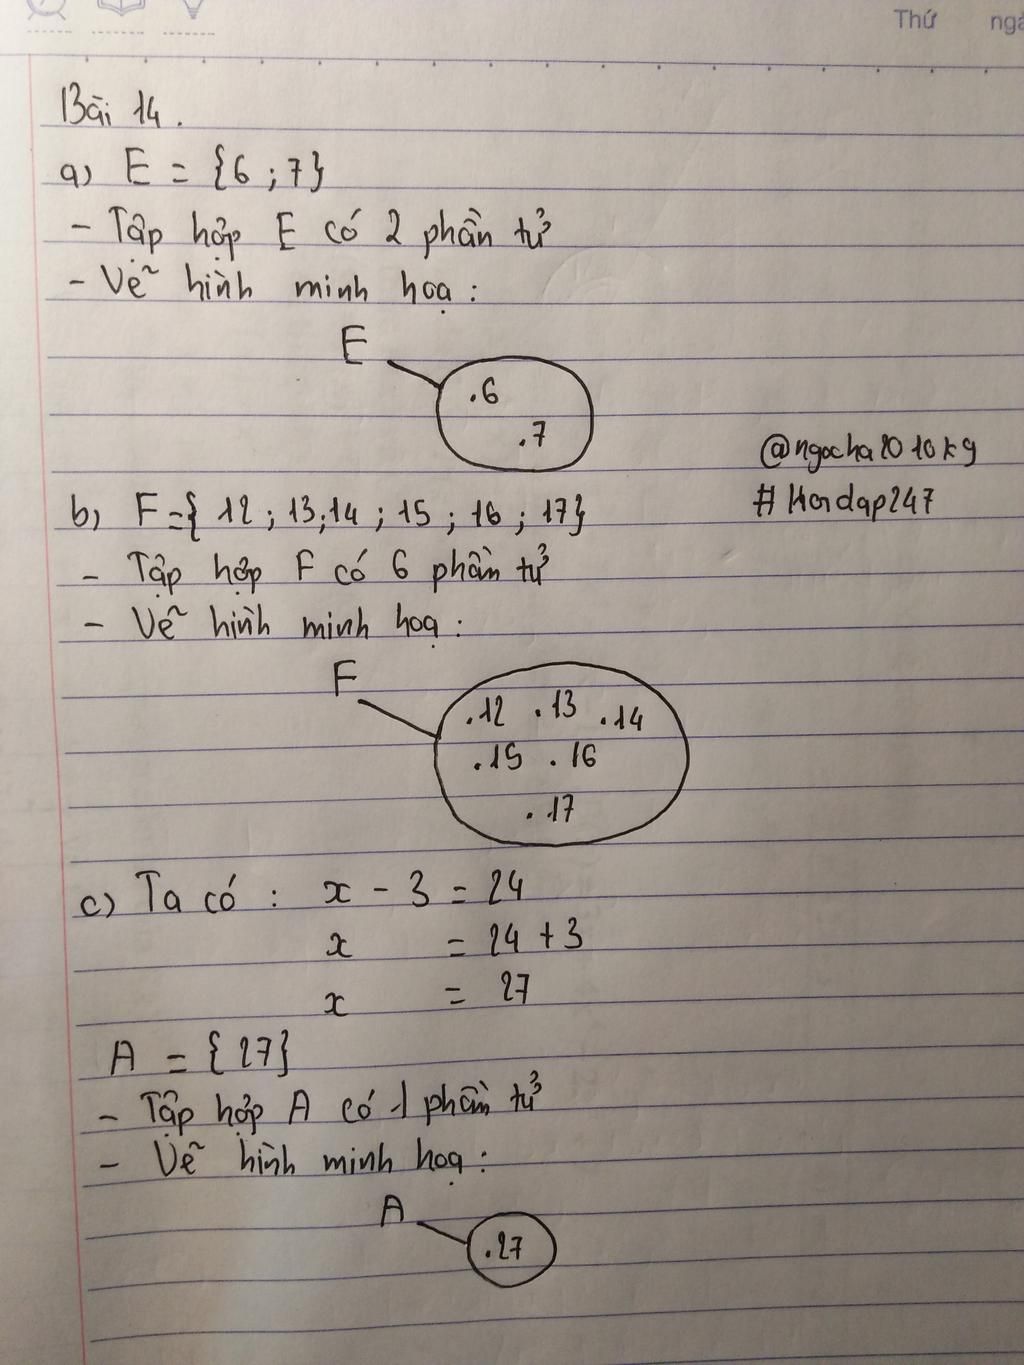 Thứ
Bài 14.
a) E = {6 ; 7}
- Tập hợp E có 2 phần tử
- Vẽ hình minh hoạ :
E
.6
.7
@ngocha2010kg
#Hoidap247
b) F={ 12 ; 13;14 ; 15 ; 16 ; 17}
- Tập hợp F có 6 phần tử
- Vẽ hình minh hoạ :
F
.12 .13 .14
.15 .16
.17
c) Ta có : x - 3 = 24
x = 24 + 3
x = 27
A = {27}
- Tập hợp A có 1 phần tử
- Vẽ hình minh hoạ :
A
.27